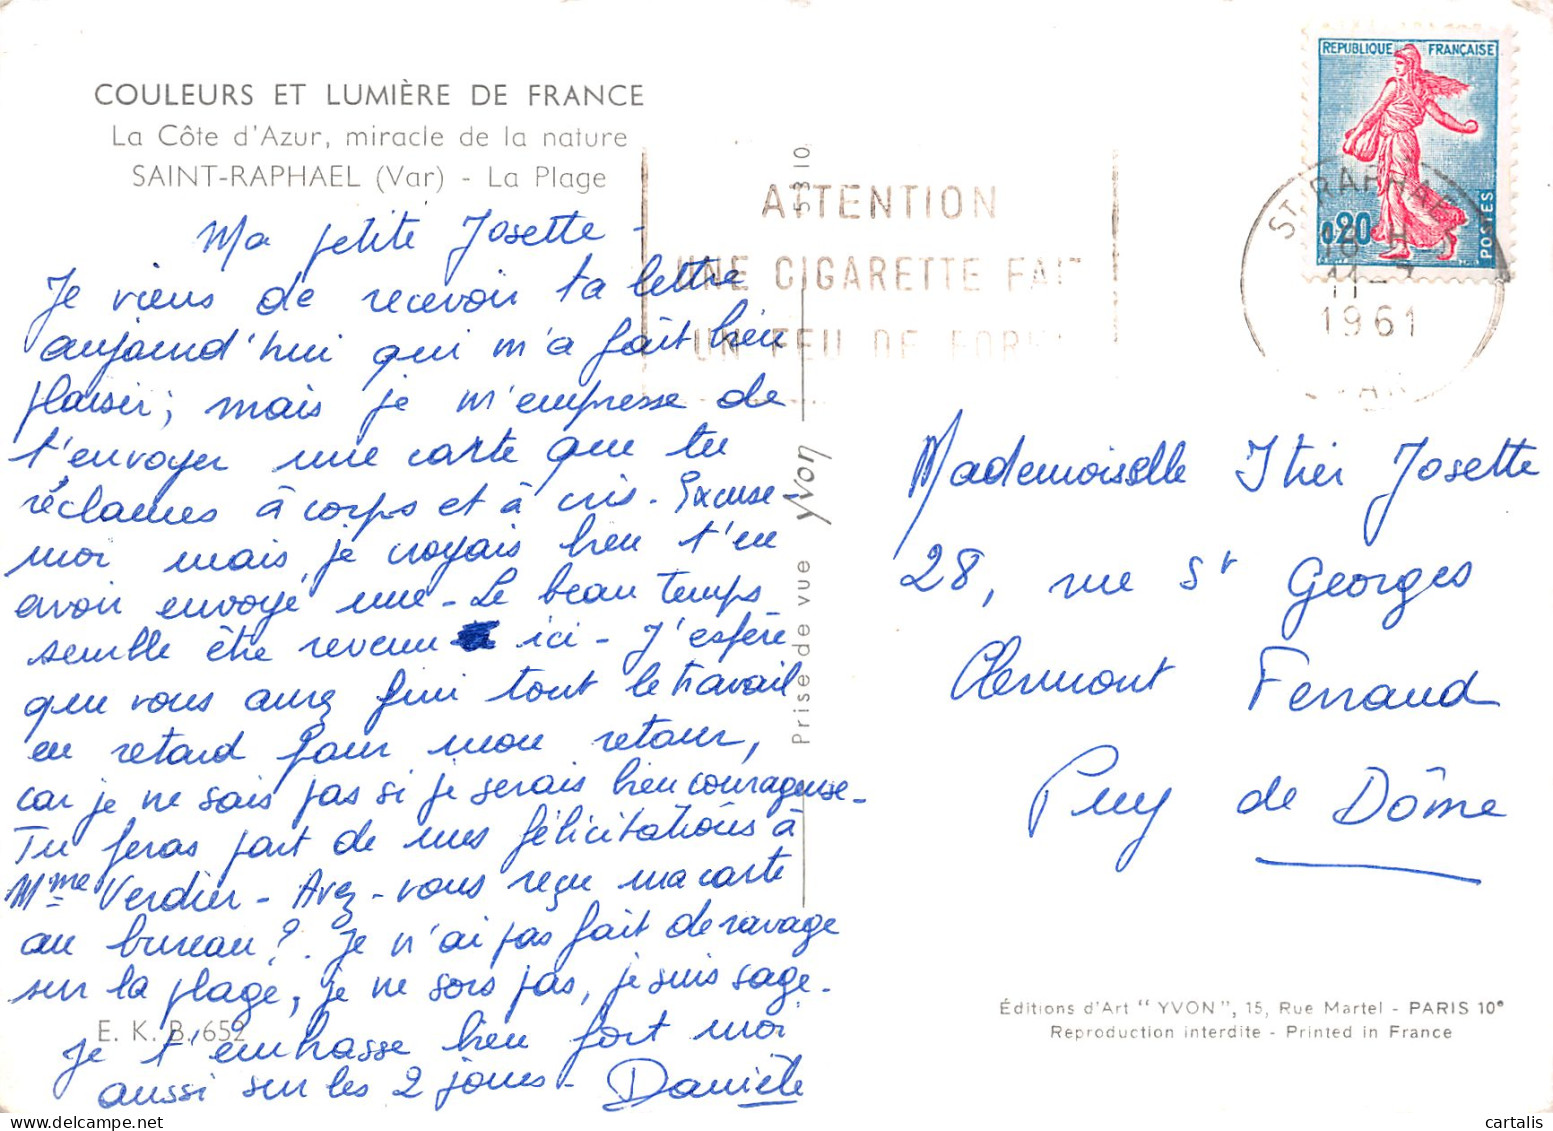 COULEURS ET LUMIÈRE DE FRANCE
La Côte d'Azur, miracle de la nature
SAINT-RAPHAEL (Var) - La Plage
Ma petite Josette -
Je viens de recevoir ta lettre
aujourd'hui qui m'a fait bien
plaisir; mais je m'empresse de
t'envoyer une carte que tu
réclames à corps et à cris. Excuse-
moi mais je croyais bien t'en
avoir envoyé une - Le beau temps
semble être revenu ici - J'espère
que vous aurez fini tout le travail
en retard pour mon retour,
car je ne sais pas si je serais bien courageuse -
Tu feras part de mes félicitations à
Mme Verdier - Avez-vous reçu ma carte
au bureau?. Je n'ai pas fait de ravage
sur la plage, je ne sors pas, je suis sage -
Je t'embrasse bien fort moi
aussi sur les 2 joues - Danièle
E. K. B. 652
5310
Prise de vue Yvon
ATTENTION
UNE CIGARETTE FAIT
UN FEU DE FORE
REPUBLIQUE FRANÇAISE
0,20
POSTES
ST RAPHAEL
16 H
11 -
1961
VAR
Mademoiselle Itier Josette
28, rue St Georges
Clermont Ferrand
Puy de Dôme
Éditions d'Art "YVON", 15, Rue Martel - PARIS 10e
Reproduction interdite - Printed in France
cartalis